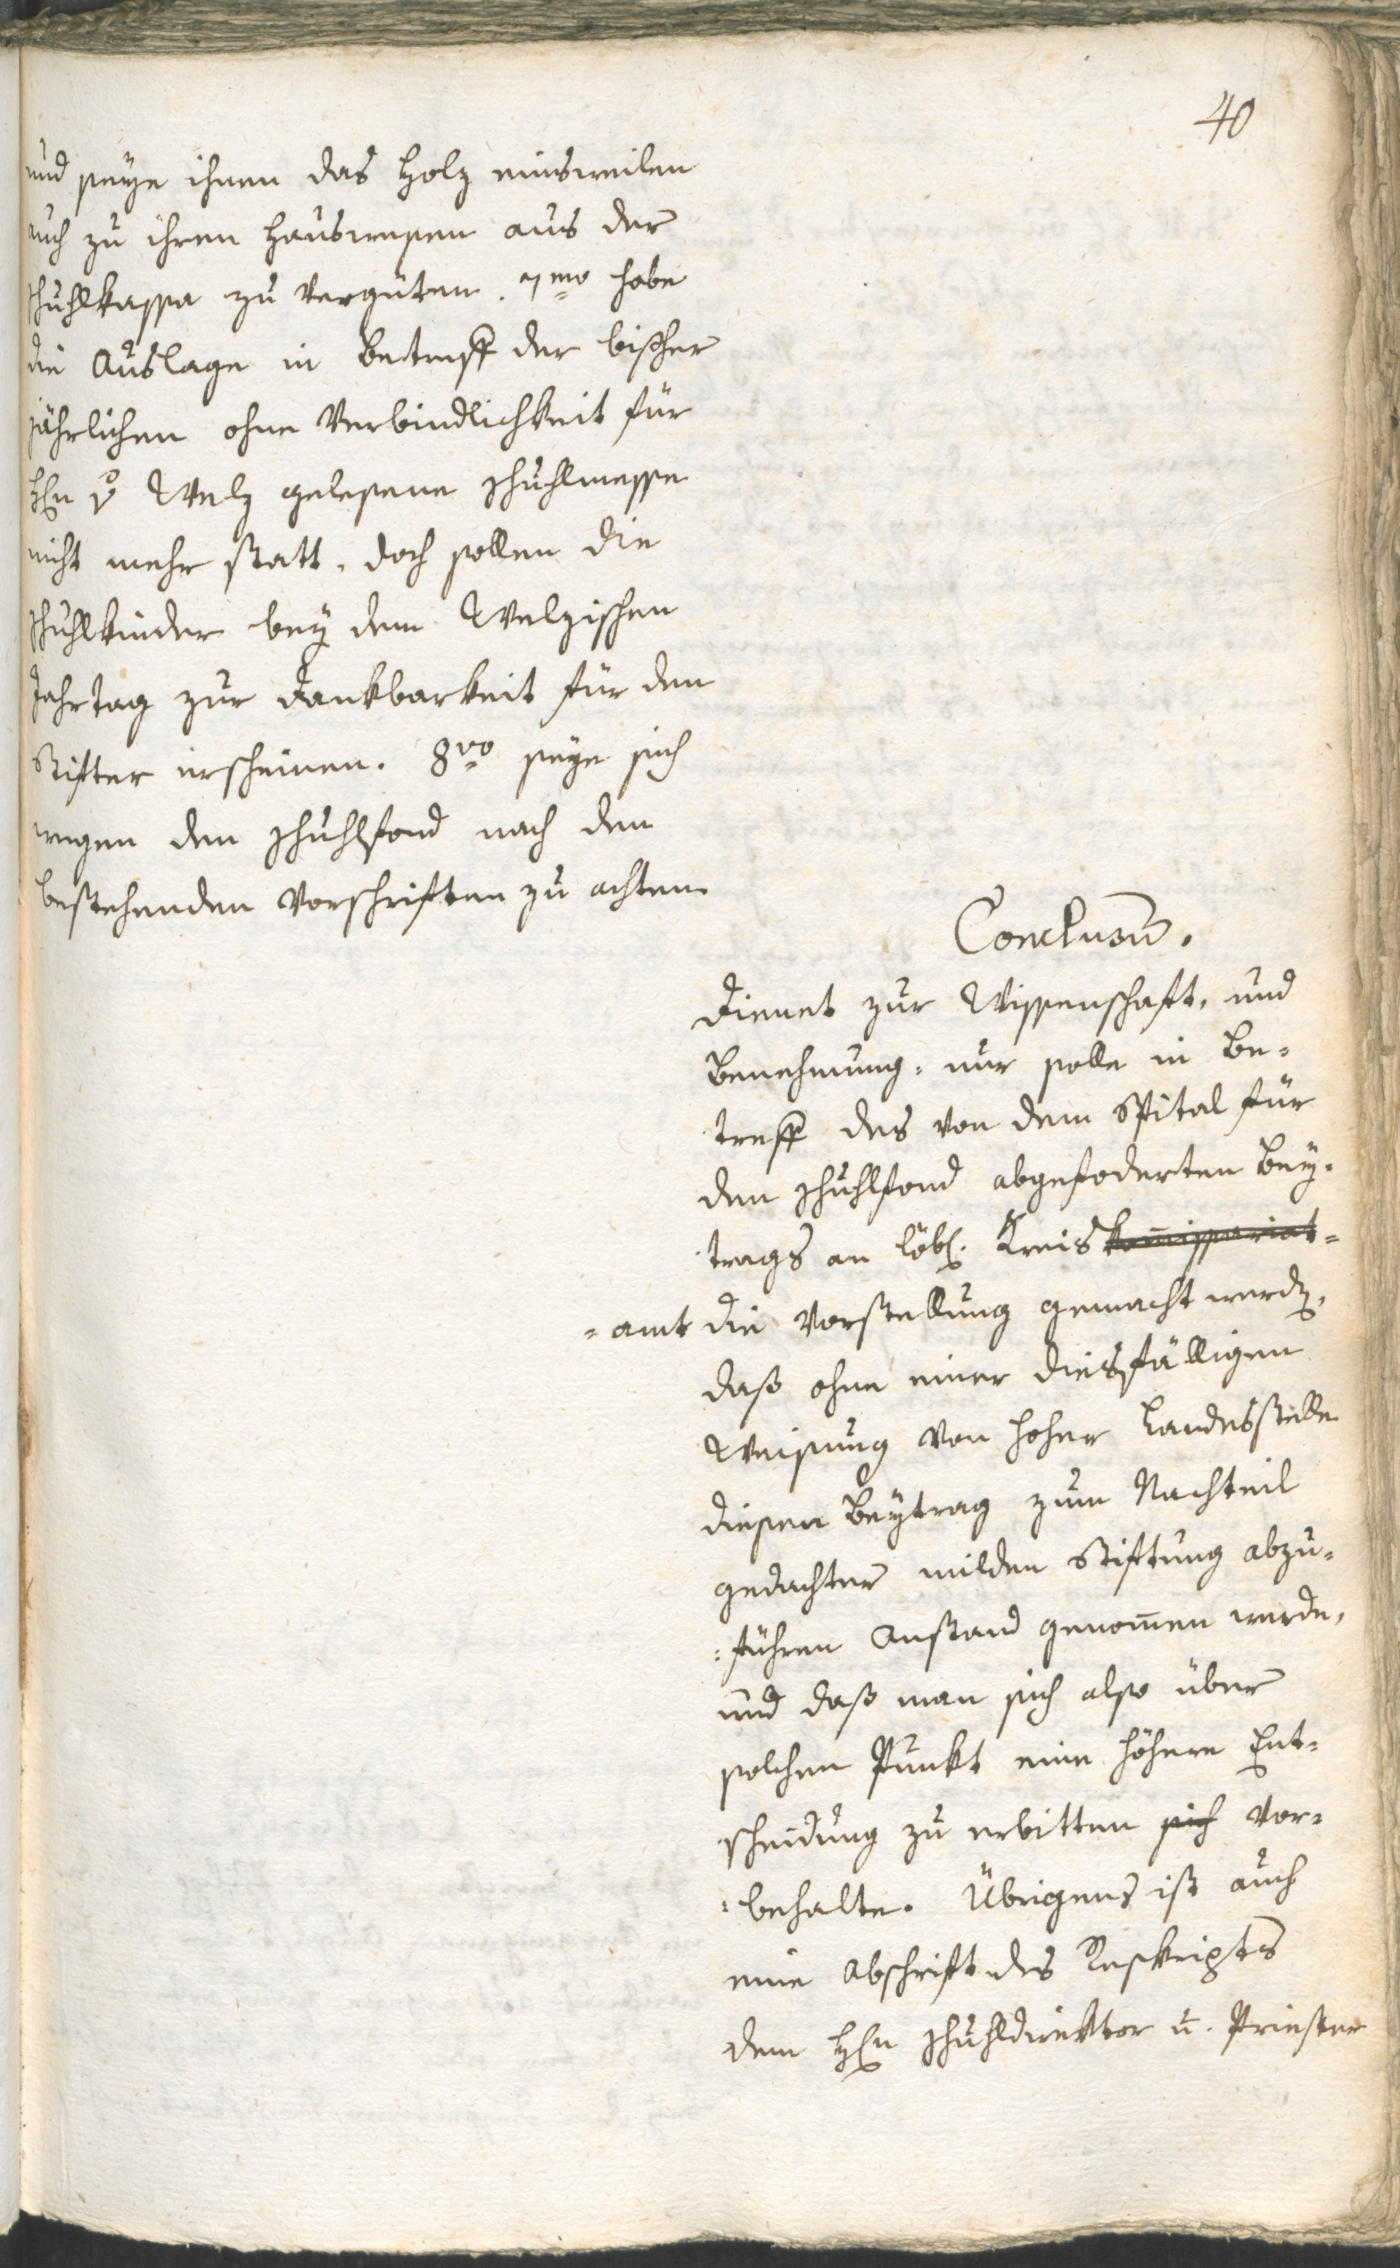 40
und seye ihnen das Holz einsweilen
auch zu ihren Hauswesen aus der
schuhlkassa zu vergüten. 7mo habe
die Auslage in Betreff der bisher
jährlichen ohne Verbindlichkeit für
Hn v Welz gelesene schuhlmesse
nicht mehr statt, doch sollen die
schuhlkinder bey dem Welzischen
Jahrtag zur Dankbarkeit für den
Stifter erscheinen. 8vo seye sich
wegen dem schuhlfond nach den
bestehenden Vorschriften zu achten
Conclusum.
Dienet zur Wissenschaft, und
Benehmung, nur solle in Be-
treff des von dem Spital für
den schuhlfond abgefoderten Bey-
trags an löbl. Kreiskom̄issariat-
-amt die Vorstellung gemacht werden,
daß ohne einer diesfälligen
Weisung von hoher Landesstelle
diesen Beytrag zum Nachteil
gedachter milden Stiftung abzu-
-führen Anstand genom̄en werde,
und daß man sich also über
solchen Punkt eine höhere Ent-
scheidung zu erbitten sich vor-
-behalte. Übrigens ist auch
eine Abschrift des Reskripts
dem Hn schuhldirektor u. Priester